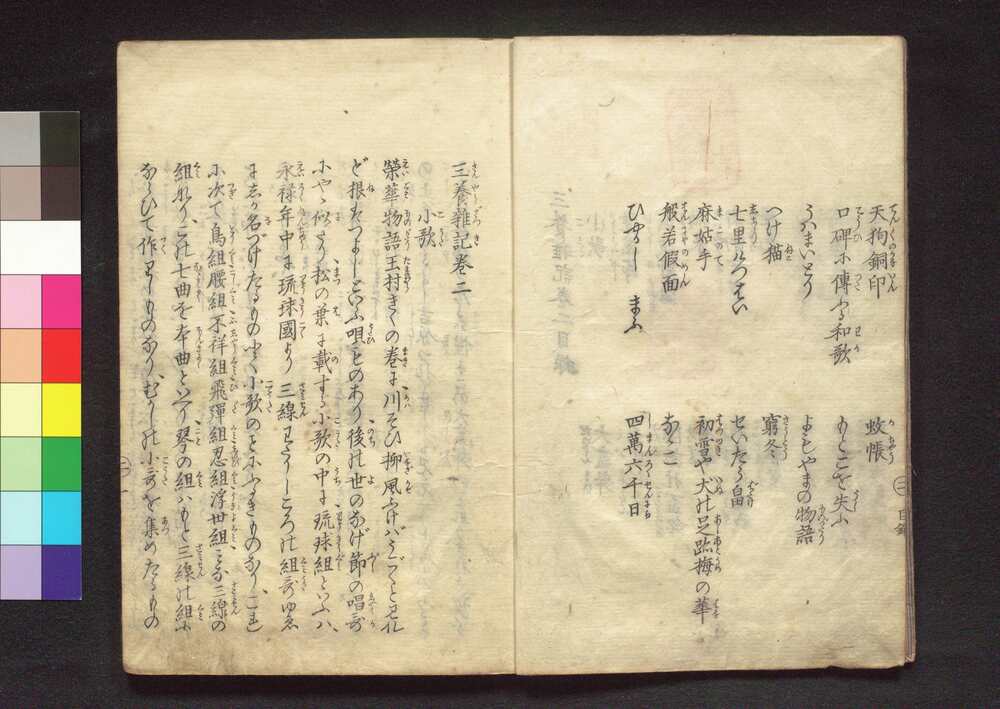 天狗銅印
口碑に傳ふる和歌
うはまいとり
つけ猫
七里けつはい
麻姑手
般若假面
ひやし まふ
蚊帳
もとでを失ふ
よもやまの物語
窮冬
せいたう畠
初雪や犬の足跡梅の華
なんこ
四萬六千日
二 目録
三養雜記巻二
小歌
榮華物語玉村きくの巻に川そひ柳風ふけばうごくとすれ
ど根はつよしといふ唄ものあり後の世のなげ節の唱哥
にやゝ似たり松の葉に載する小歌の中に琉球組といふハ、
永禄年中に琉球國より三線わたりしころの組哥ゆゑ
にしか名づけたるものにて小歌のもとにふるきものなり、これ
に次て鳥組腰組不祥組飛彈組忍組浮世組みな三線の
組なりこの七曲を本曲といへり琴の組ハもと三線の組に
ならひて作りしものなり、むかしの小哥を集めたるもの